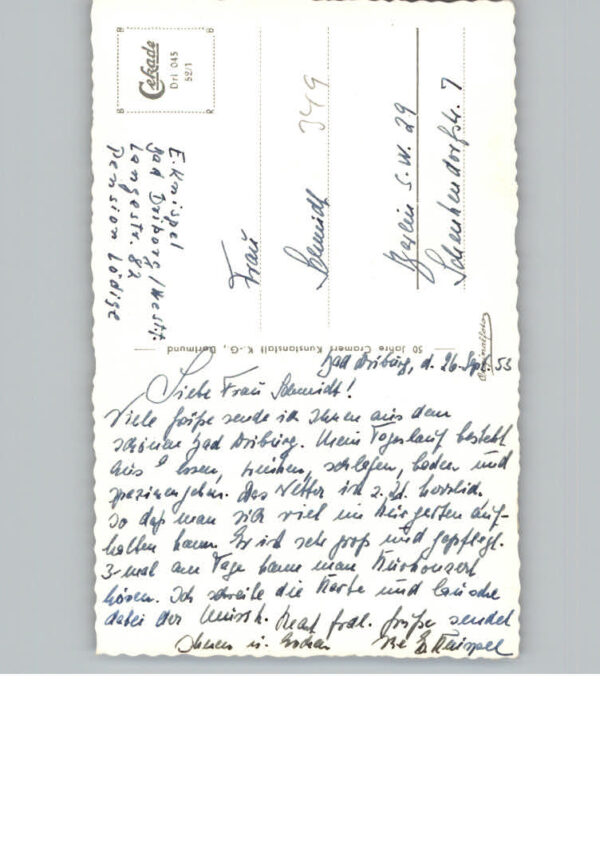 Cekade
Dri 045
52/1
E. Knispel
Bad Driburg/Westf.
Langestr. 82
Pension Lödige
Frau
Schmidt
349
Berlin S.W. 29
Schenkendorfstr. 7
50 Jahre Cramers Kunstanstalt K.-G., Dortmund
Originalfoto
Bad Driburg, d. 26. Sept. 53
Liebe Frau Schmidt!
Viele Grüße sende ich Ihnen aus dem
schönen Bad Driburg. Mein Tageslauf besteht
aus essen, trinken, schlafen, baden und
spazierengehen. Das Wetter ist z. Zt. herrlich.
so daß man sich viel im Kurgarten auf-
halten kann. Er ist sehr groß und gepflegt.
3-mal am Tage kann man Kurkonzert
hören. Ich schreibe die Karte und lausche
dabei der Musik. Recht frdl. Grüße sendet
Ihnen u. Knispel